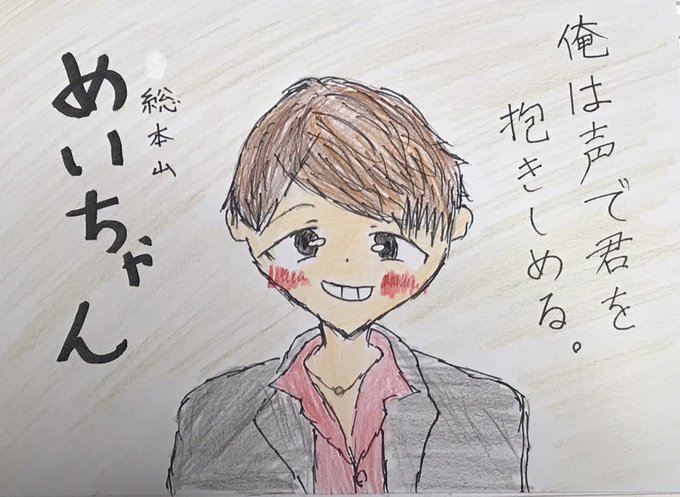 俺は声で君を
抱きしめる。
総本山
めいちゃん